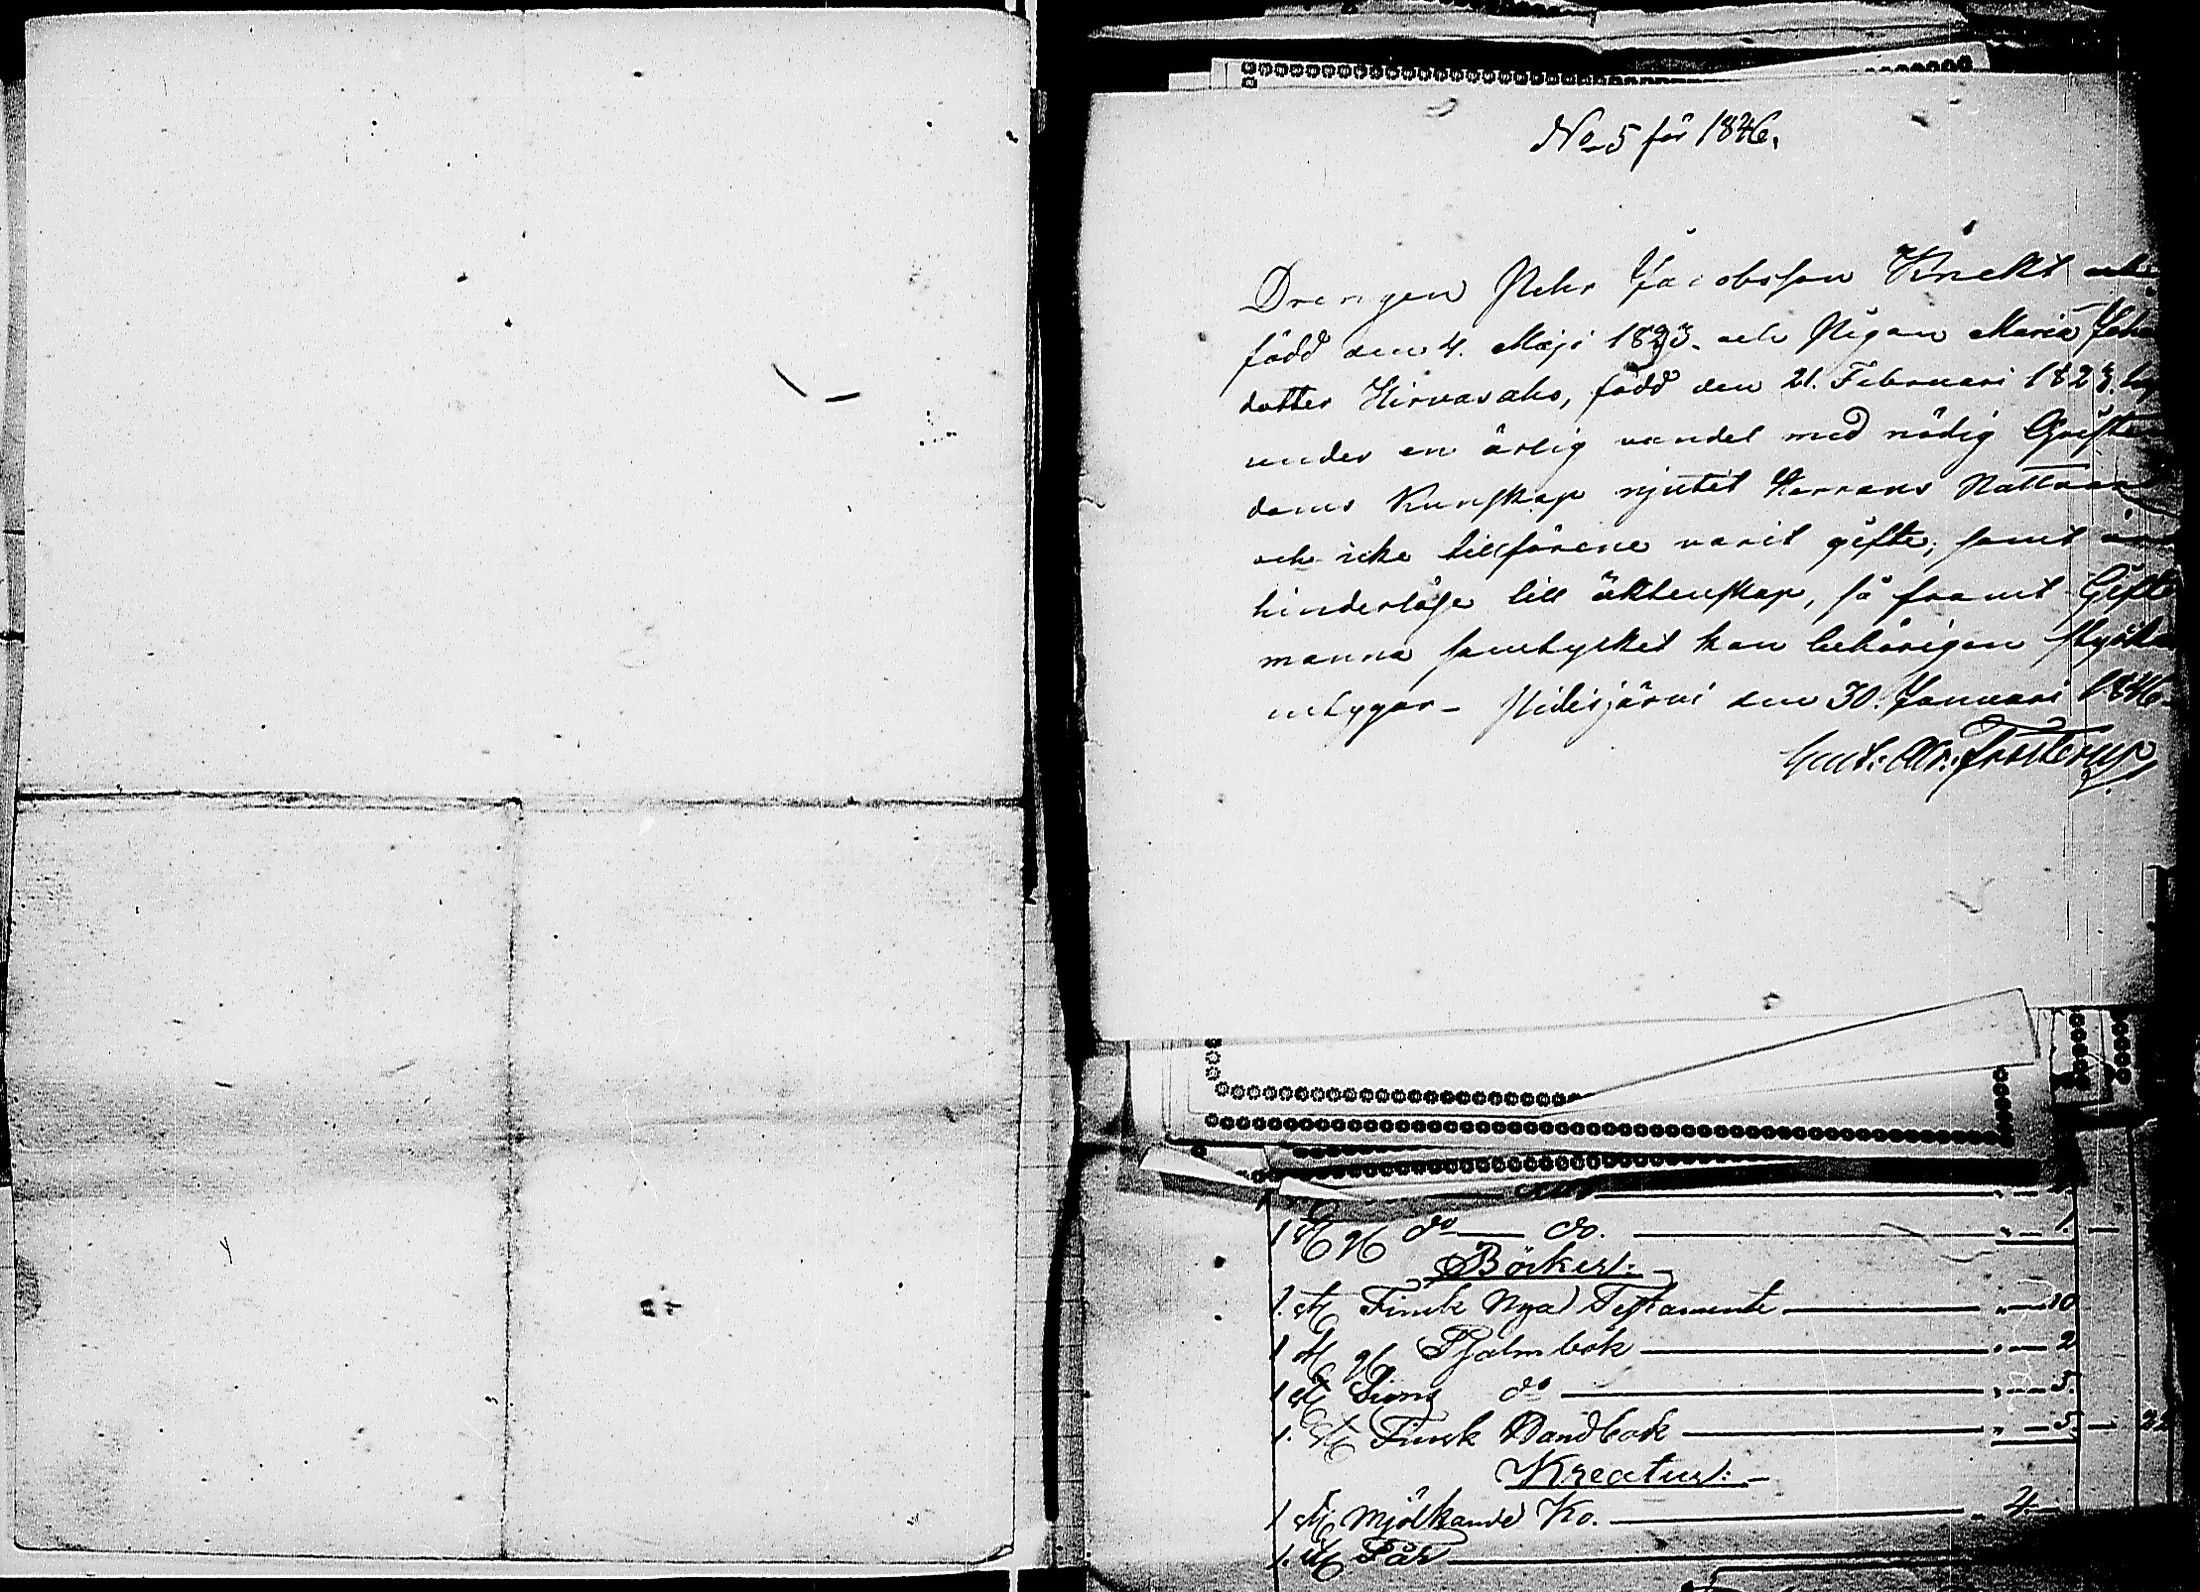 No 5 för 1846.
Drengen Pehr Jacobsson Knekt
född den 4. Maji 1823. och Pigan Maria Joha
dotter Hirvasaho, född den 21. Februari 1823.
under en ärlig vandel med nödig Christen
doms Kunskap njutit Herrans Nattvard
och icke tillförene varit gifte, samt äro
hinderlöse till äktenskap, så framt Gifto
manna samtycket kan behörigen styrkas
intygar. Pidisjärvi den 30. Januari 1846.
Gust: Adr: Frosterus
1 st do do. " 1. —
Böcker:
1. st Finsk Nya Testamente " 10
1 st Psalmbok " 2
1 st Sions do " 5.
1. st Finsk Handbok " 5. — 22
Kreatur:
1 st Mjölkande Ko. 4. —
1. st Får